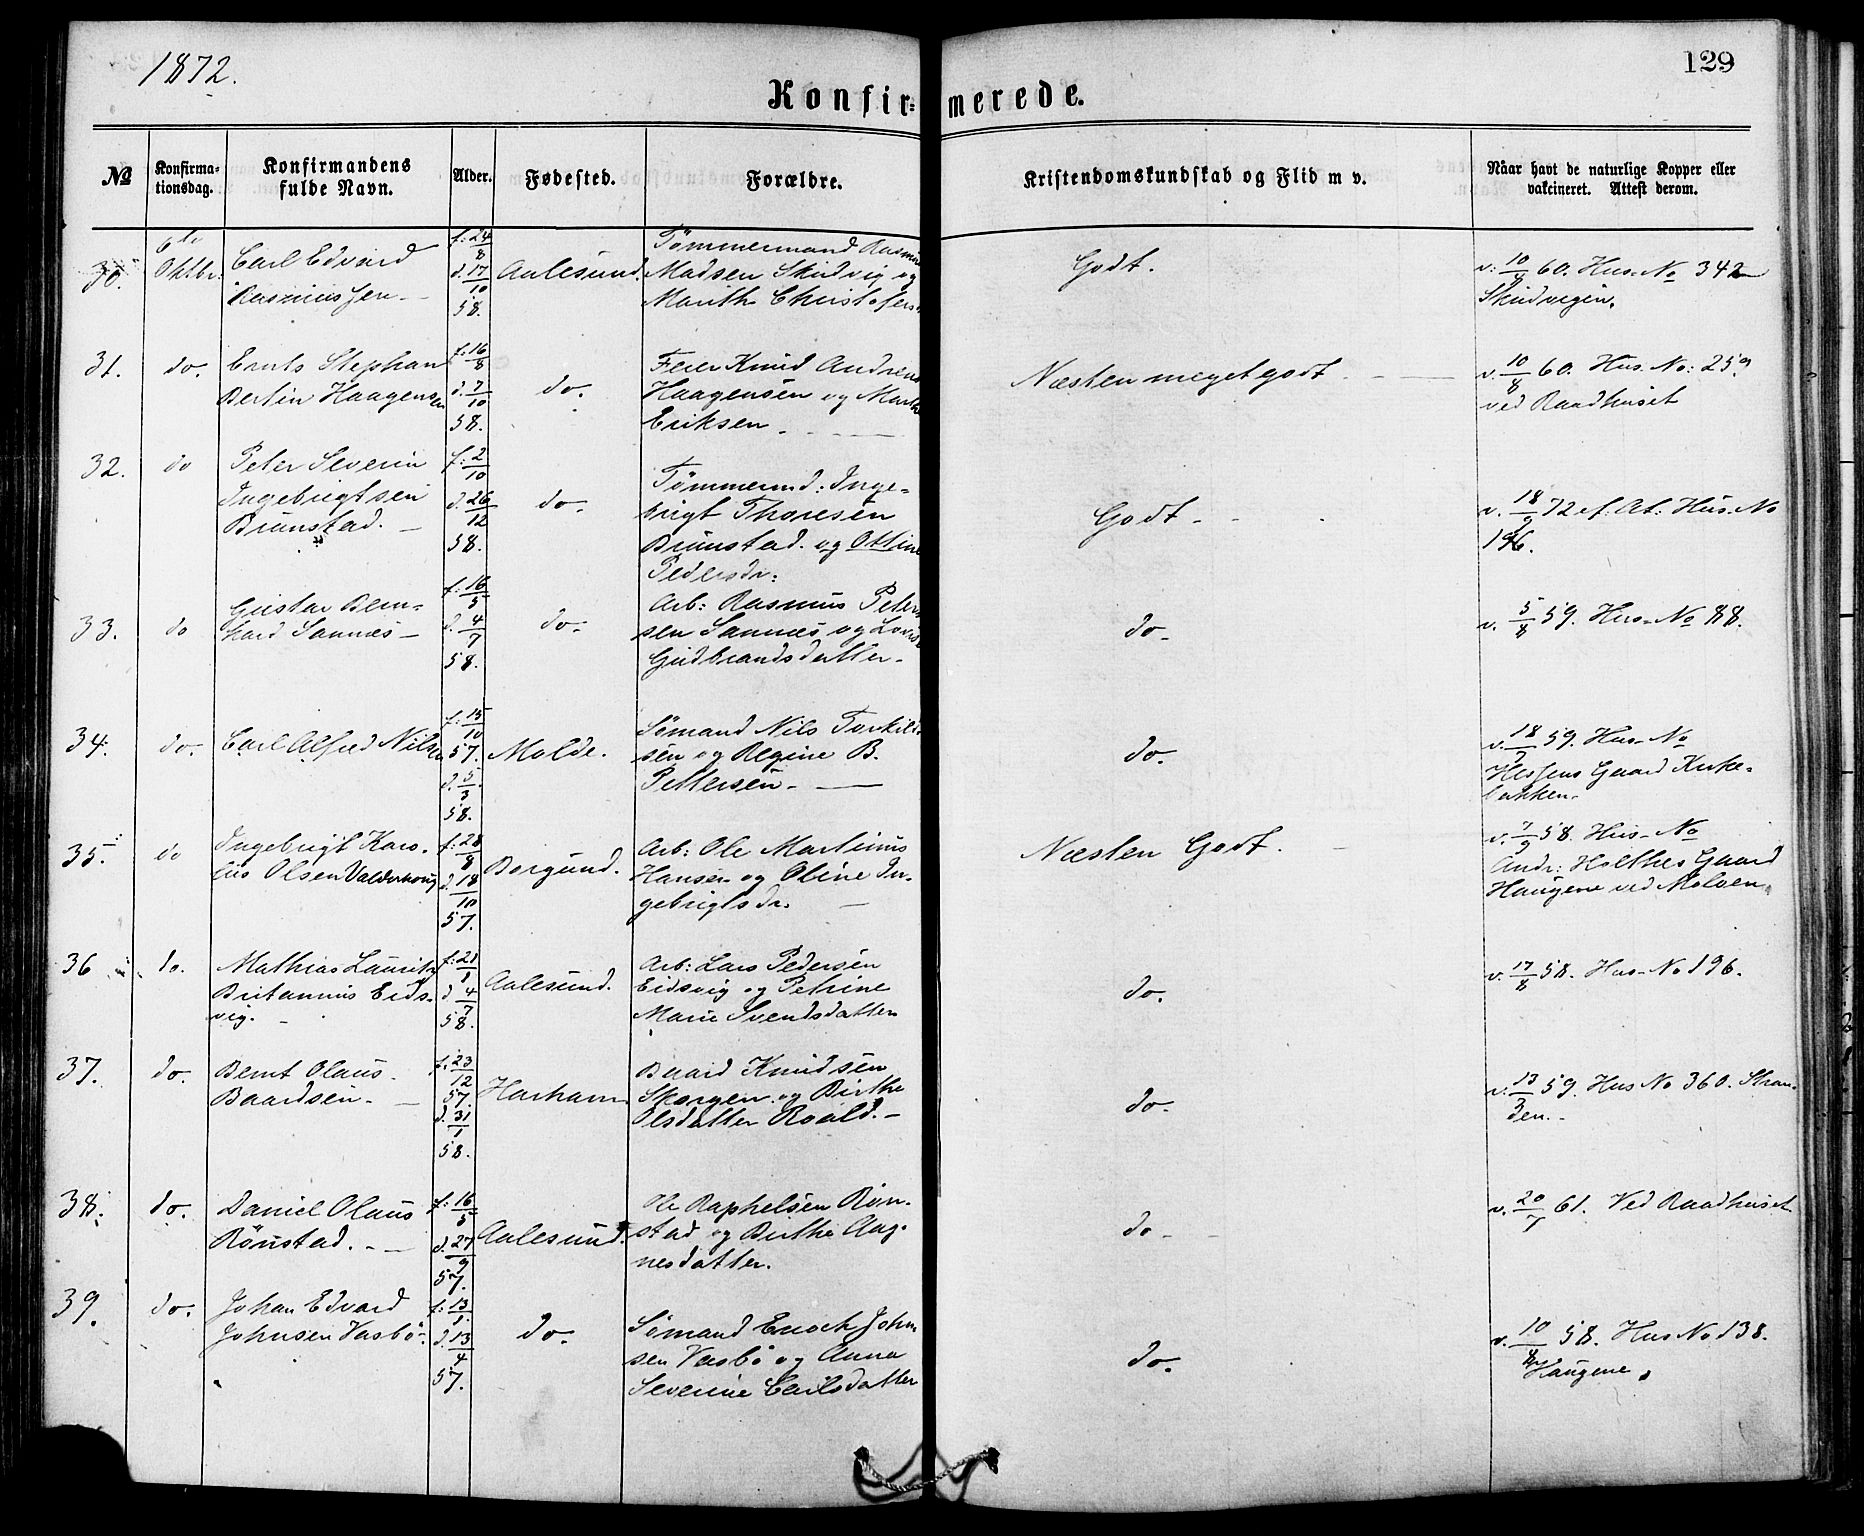 1872.
129
Konfir=
merede.
No
Konfirma=
tionsdag.
Konfirmandens
fulde Navn.
Alder.
Fødested.
Forældre.
Kristendomskundskab og Flid m v.
Naar havt de naturlige Kopper eller
vakcineret. Attest derom.
30. 6te Oktbr. Carl Edvard
Rasmussen
f: 24/8
d. 17/10
58.
Aalesund.
Tømmermand Rasmus
Madsen Skudvig og
Marith Christofers
Godt.
v: 10/8 60. Hus-No 342
Skudvegin.
31. do. Ernts Stephan
Bertin Haagensen
f: 16/8
d. 7/10
58.
do.
Feier Knud Andreas
Haagensen og Marth
Eriksen
Næsten meget godt
v. 10/8 60. Hus. No: 259
ved Raadhuset
32. do Peter Severin
Ingebrigtsen
Brunstad.
f: 2/10
d. 26/12
58.
do.
Tømmermd: Inge=
brigt Thoresen
Brunstad og Olline
Pedersdr:
Godt
v. 18/9 72 ef. At: Hus. No
196.
33. do Gustav Bern=
hard Sannæs
f: 16/5
d. 4/7
58.
do.
Arb: Rasmus Peter
sen Sannæs og Lovise
Gudbrandsdatter
do.
v. 5/8 59. Hus-No 88.
34. do. Carl Alfred Nilsen
f: 15/10
57.
d. 5/3
58.
Molde.
Sømand Nils Torkild
sen og Regine B.
Pettersen
do.
v. 18/7 59. Hus-No
Hessens Gaard Kirke=
bakken
35. do Ingebrigt Karo.
lus Olsen Valderhoug
f: 28/8
d. 18/10
57.
Borgund.
Arb: Ole Martinus
Hansen og Oline In=
gebrigtsdr.
Næsten Godt.
v. 7/9 58. Hus-No
Andr: Holthes Gaard
Haugene ved Moloen.
36 do. Mathias Lauritz
Britannus Eids=
vig.
f: 21/1
d. 4/7
58.
Aalesund.
Arb: Lars Pedersen
Eidsvig og Petrine
Marie Svendsdatter
do.
v. 17/8 58. Hus-No 196.
37. do. Bernt Olaus
Baardsen
f: 23/12
57.
d. 31/1
58.
Harham
Baard Knudsen
Skorgen og Birthe
Olsdatter Roald.
do.
v. 13/3 59. Hus No 360. Stran=
den.
38. do. Daniel Olaus
Rönstad.
f. 16/5
d. 27/9
57.
Aalesund.
Ole Raphelsen Rön=
stad og Birthe Aag=
nesdatter.
do
v. 20/7 61. Ved Raadhuset
39. do. Johan Edvard
Johnsen Vasbö
f. 13/1
d. 13/4
57.
do.
Sømand Enoch John
sen Vasbö og Anna
Severine Carlsdatter
do.
v. 10/8 58. Hus No 138.
Haugene.